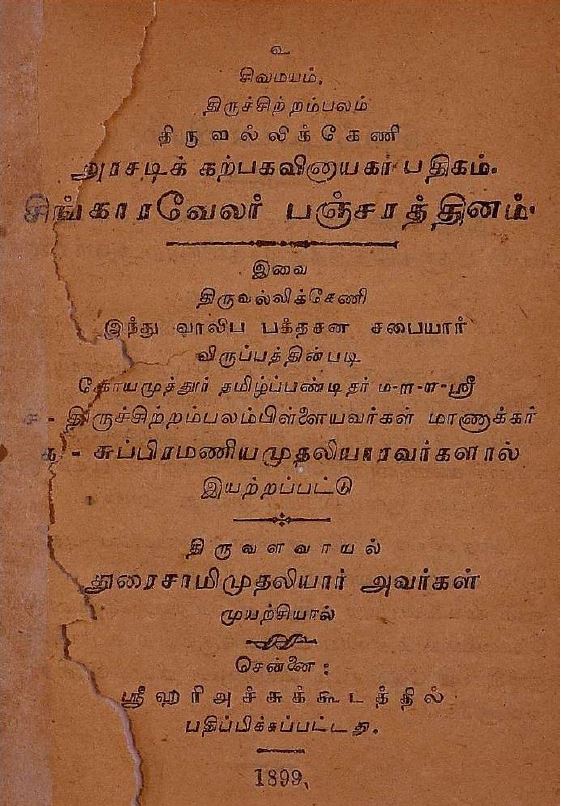 உ
சிவமயம்.
திருச்சிற்றம்பலம்
திருவல்லிக்கேணி
அரசடிக் கற்பகவிநாயகர் பதிகம்.
சிங்காரவேலர் பஞ்சரத்தினம்.
இவை
திருவல்லிக்கேணி
இந்து வாலிப பக்தசன சபையார்
விருப்பத்தின்படி
கோயமுத்தூர் தமிழ்ப்பண்டிதர் ம-ள-ள-ஸ்ரீ
ச - திருச்சிற்றம்பலம்பிள்ளையவர்கள் மாணாக்கர்
சுப்பிரமணியமுதலியாரவர்களால்
இயற்றப்பட்டு
திருவளவாயல்
துரைசாமிமுதலியார் அவர்கள்
முயற்சியால்
சென்னை:
ஸ்ரீஹரிஅச்சுக்கூடத்தில்
பதிப்பிக்கப்பட்டது.
1899.